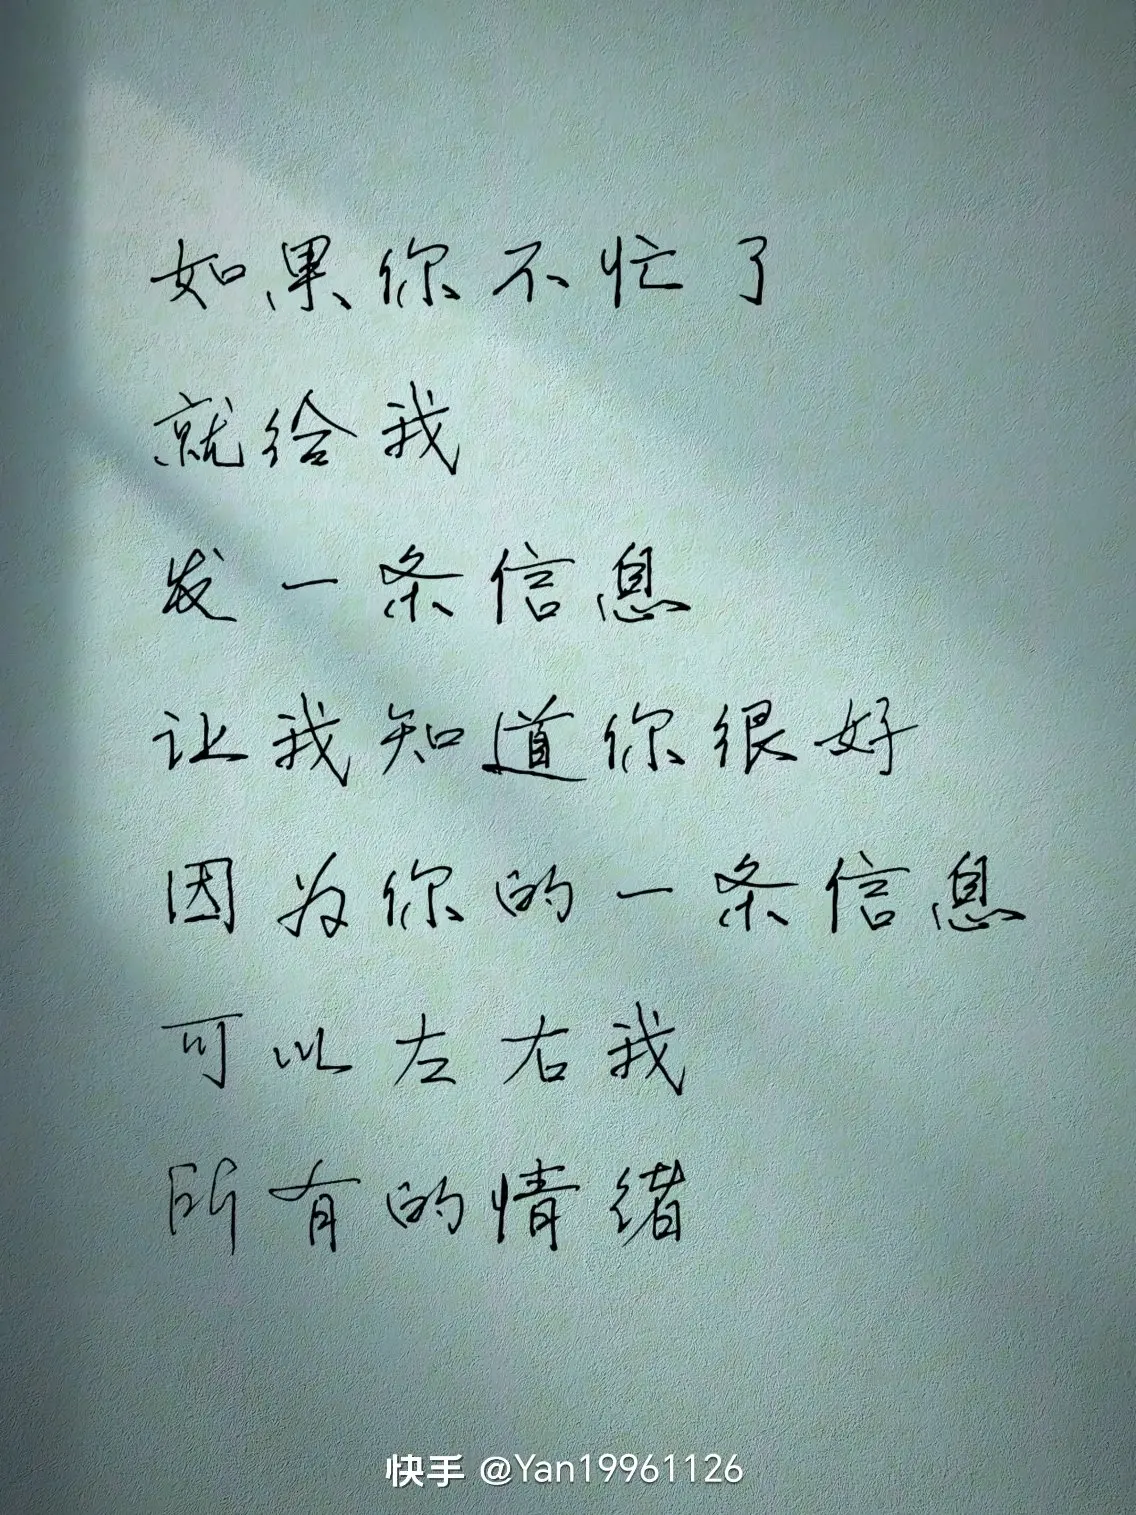 如果你不忙了
就给我
发一条信息
让我知道你很好
因为你的一条信息
可以左右我
所有的情绪
快手 @Yan19961126